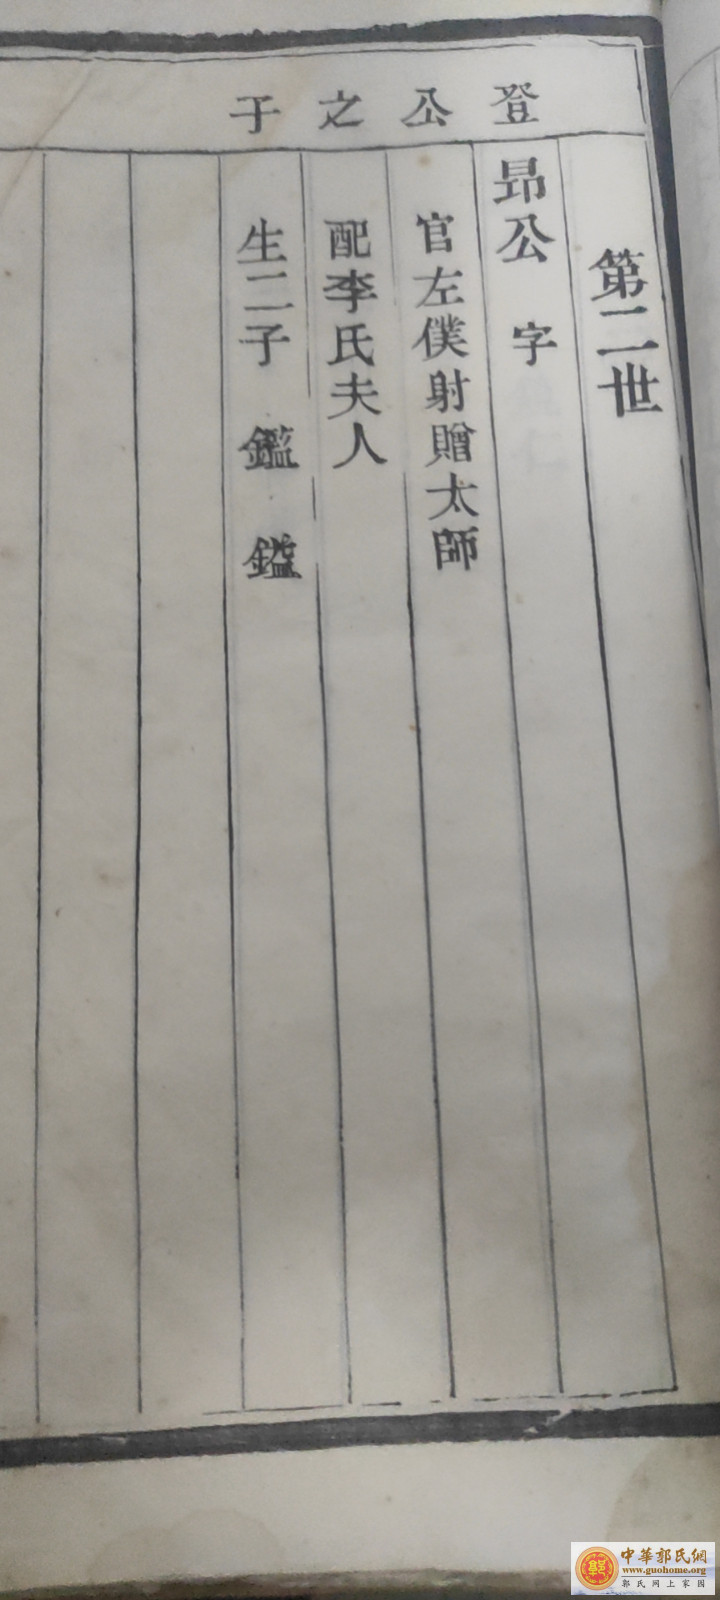 登公之子
第二世
昻公 字
官左僕射贈太師
配李氏夫人
生二子 鑑 鎰
中華郭氏網
www.guohome.org
郭氏网上家园